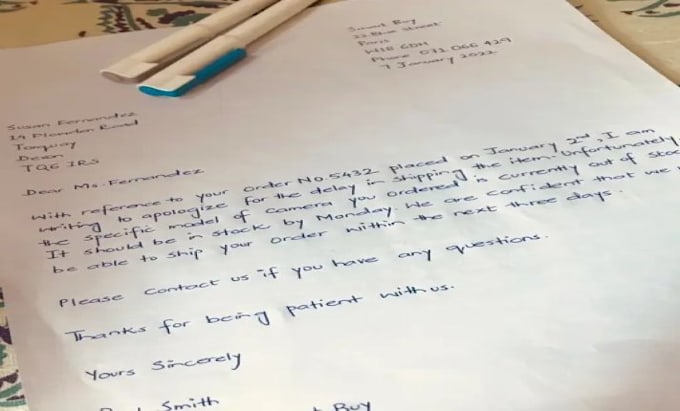 Smart Buy
22 Blue Street
Paris
W18 6DH
Phone 071 066 429
7 January 2022
Susan Fernandez
Road
Torquay
Devon
TQ6 IRS
Dear Ms. Fernandez
With reference to your order No.5432 placed on January 2nd, I am
writing to apologize for the delay in shipping the item. Unfortunately
the specific model of camera you ordered is currently out of
It should be in stock by Monday. We are confident that we
be able to ship your order within the next three days.
Please contact us if you have any questions.
Thanks for being patient with us.
Yours Sincerely
Smith
Buy